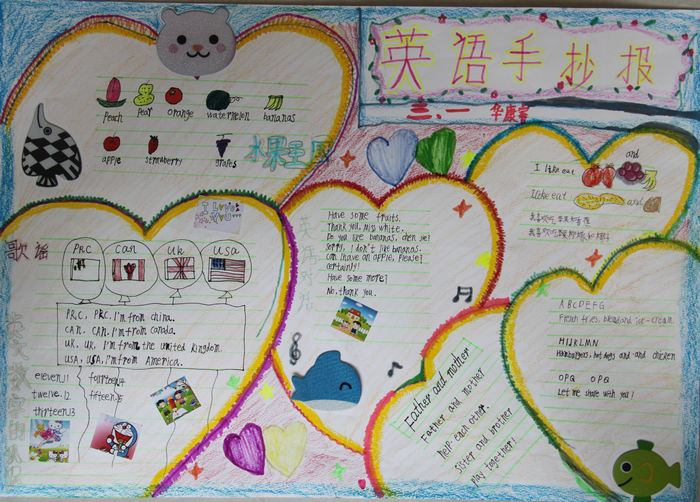 英语手抄报
三、一 华康睿
peach pear orange watermelon bananas
apple strawberry grapes
水果王国
I Love You
歌谣
PRC can UK USA
PRC. PRC. I'm from china.
CAN. CAN. I'm from canada.
UK. UK. I'm from the united kingdom.
USA. USA. I'm from America.
eleven11 fourteen14
twelve.12 fifteen15
thirteen13
英语对话
Have some fruits.
Thank you, miss white.
Do you like bananas, chen jie?
Sorry, I don't like bananas.
can I have an apple, Please?
certainly!
Have some more?
No, thank you.
I like eat and
I like eat and
Father and mother
Father and mother
Help each other.
Sister and brother
Play together!
ABCDEFG
French fries, bread and ice-cream.
HIJKLMN
Hamburgers, hot dogs and and chicken
OPQ OPQ
Let me share with you!